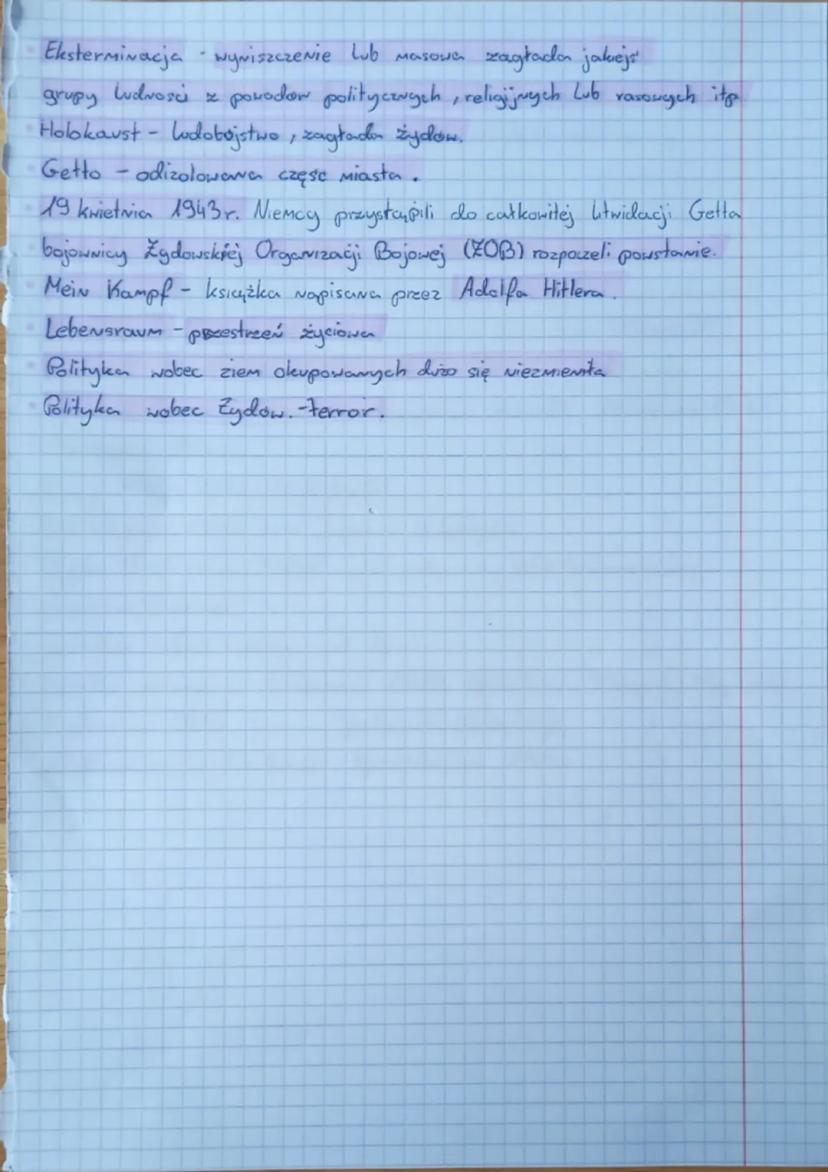 Eksterminacja - wyniszczenie lub masowa zagłada jakiejś
grupy ludności z powodów politycznych, religijnych lub rasowych itp
Holokaust - ludobójstwo, zagłada żydów.
Getto - odizolowana część miasta.
19 kwietnia 1943r. Niemcy przystąpili do całkowitej litwidacji Getta
bojownicy Żydowskiej Organizacji Bojowej (ŻOB) rozpoczeli powstanie.
Mein Kampf - książka napisana przez Adolfa Hitlera.
Lebensraum - przestrzeń życiowa
Polityka wobec ziem okupowanych dużo się niezmieniła
Polityka wobec Żydów. - terror.